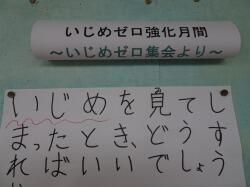 いじめゼロ強化月間
～いじめゼロ集会より～
いじめを見てし
まったとき、どうす
ればいいでしょう